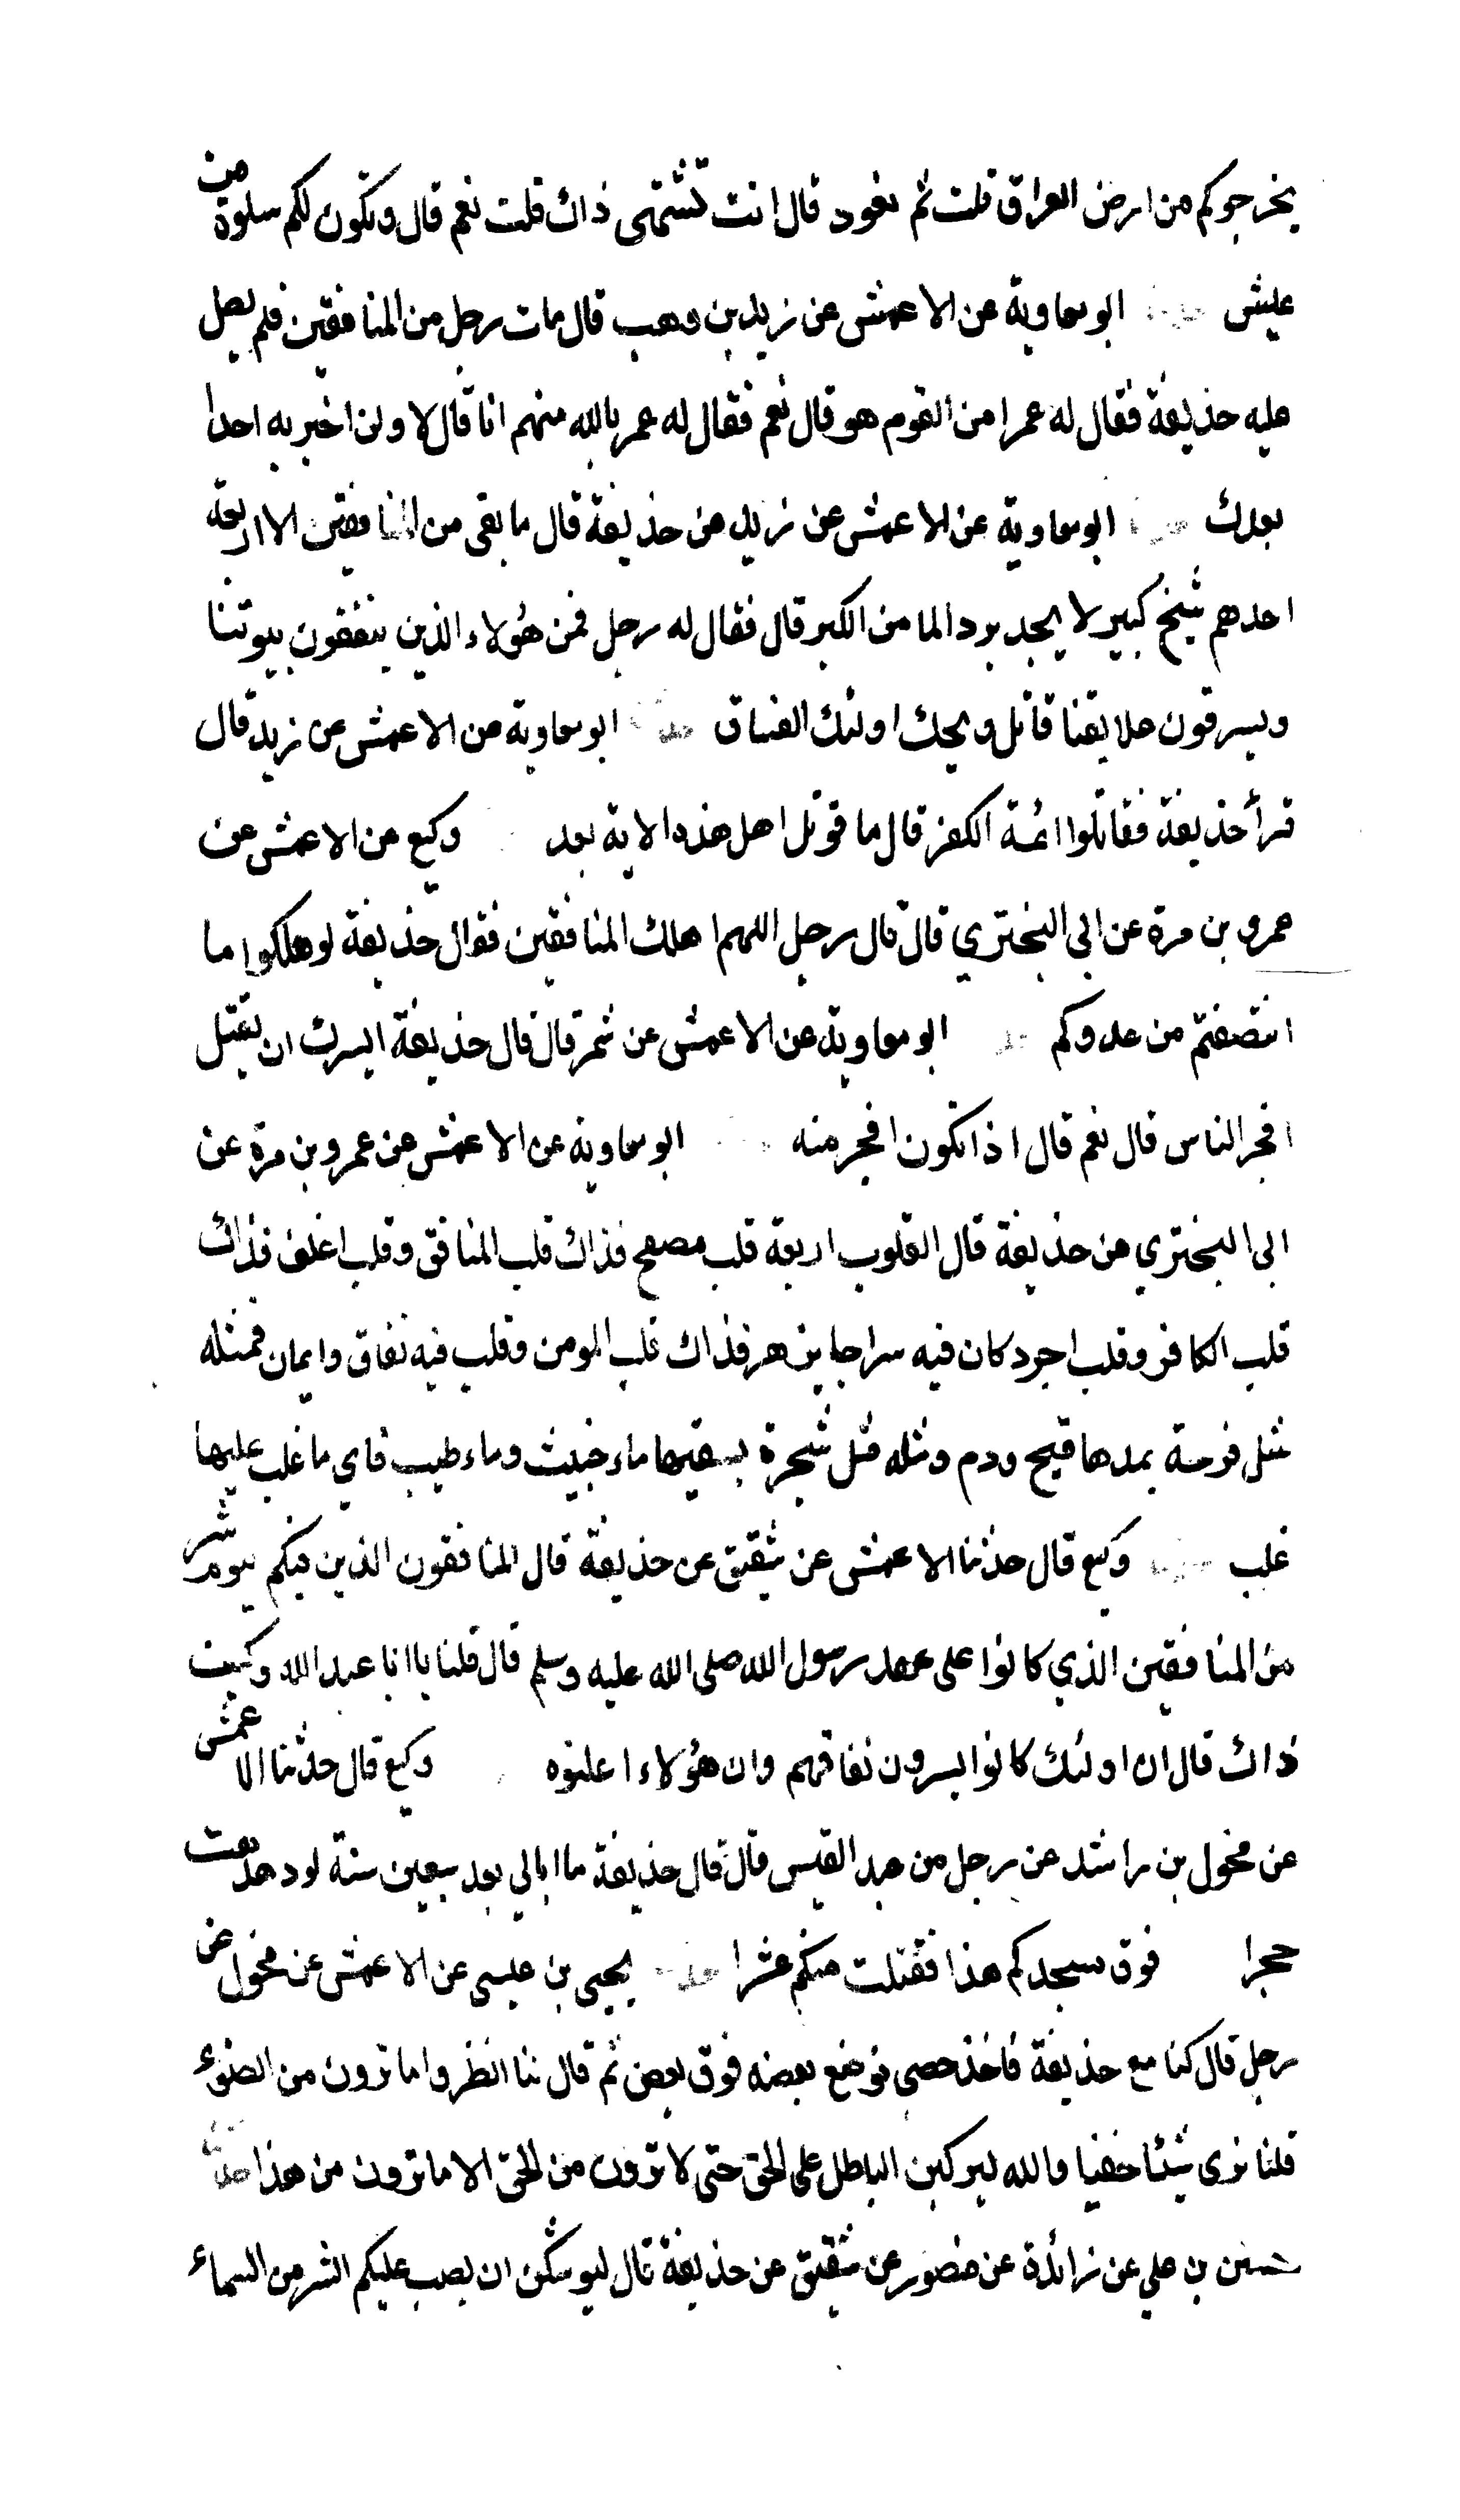 يخرجوكم من ارض العراق قلت ثم نعود قال انت تشتهى ذاك قلت نعم قال وتكون لكم سلوة من
عيش ابو معاوية عن الاعمش عن زيد بن وهب قال مات رجل من المنافقين فلم يصل
عليه حذيفة فقال له عمر امن القوم هو قال نعم فقال له عمر بالله منهم انا قال لا ولن اخبر به احدا
بعدك ابو معاوية عن الاعمش عن زيد عن حذيفة قال ما بقى من المنافقين الا اربعة
احدهم شيخ كبير لا يجد برد الما من الكبر قال فقال له رجل فمن هؤلاء الذين ينقفون بيوتنا
ويسرقون علايقنا قائل ويحك اولئك الفساق حدثنا ابو معاوية عن الاعمش عن زيد قال
قرأ حذيفة فقاتلوا ائمة الكفر قال ما قوتل اهل هذه الاية بعد وكيع عن الاعمش عن
عمرو بن مرة عن ابى البخترى قال قال رجل اللهم اهلك المنافقين فقال حذيفة لو هلكوا ما
انتصفتم من عدوكم ابو معاوية عن الاعمش عن شمر قال قال حذيفة ايسرك ان يقتل
افجر الناس قال نعم قال اذا تكون افجر منه ابو معاوية عن الاعمش عن عمرو بن مرة عن
ابى البخترى عن حذيفة قال القلوب اربعة قلب مصفح فذاك قلب المنافق وقلب اغلف فذاك
قلب الكافر وقلب اجرد كان فيه سراجا يزهر فذاك قلب المومن وقلب فيه نفاق وايمان فمثله
مثل قرحة يمدها قيح ودم ومثله مثل شجرة يسقيها ماء خبيث وماء طيب فاي ما غلب عليها
غلب حدثنا وكيع قال حدثنا الاعمش عن شقيق عن حذيفة قال المنافقون الذين فيكم اليوم شر
من المنافقين الذي كانوا على عهد رسول الله صلى الله عليه وسلم قال قلنا يا ابا عبد الله وكيف
ذاك قال ان اولئك كانوا يسرون نفاقهم وان هؤلاء اعلنوه وكيع قال حدثنا الاعمش
عن مخول بن راشد عن رجل من عبد القيس قال قال حذيفة ما ابالي بعد سبعين سنة لو دهدهت
حجرا فوق مسجدكم هذا فقتلت منكم عشرا حدثنا يحيى بن عيسى عن الاعمش عن مخول عن
رجل قال كنا مع حذيفة فاخذ حصى فوضع بعضه فوق بعض ثم قال لنا انظروا ما ترون من الضوء
قلنا نرى شيئا خفيا والله ليركبن الباطل على الحق حتى لا ترون من الحق الا ما ترون من هذا حدثنا
حسين بن على عن زائدة عن منصور عن شقيق عن حذيفة قال ليوشكن ان يصب عليكم الشر من السماء